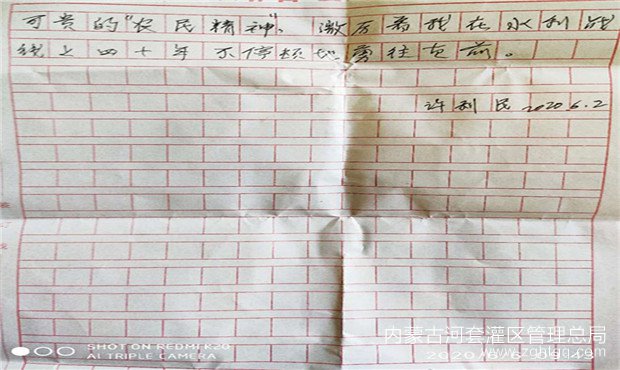 可贵的"农民精神",激厉着我在水利战
线上四十年不停顿地勇往直前。
许利民 2020.6.2
SHOT ON REDMI K20
AI TRIPLE CAMERA
内蒙古河套灌区管理总局
www.zghtgq.com